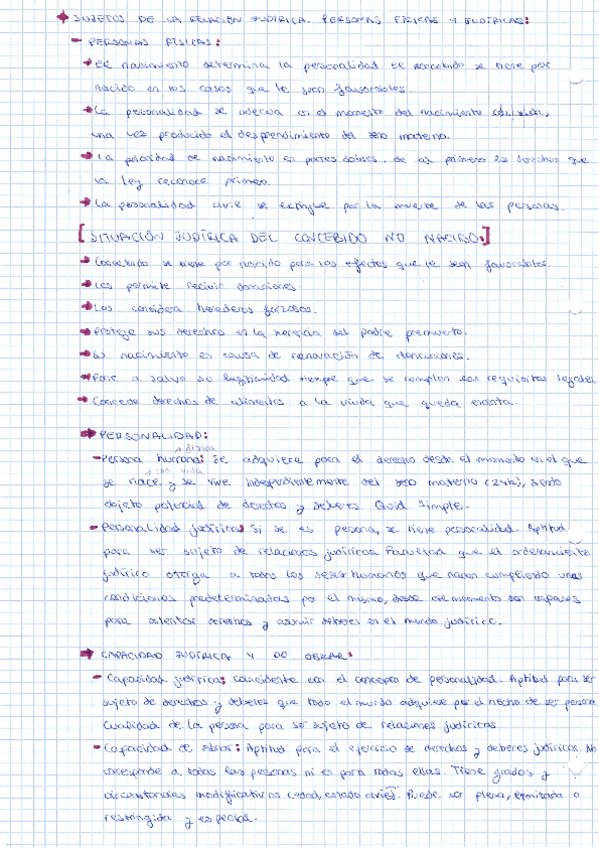 SUJETOS DE LA RELACIÓN JURÍDICA. PERSONAS FÍSICAS Y JURÍDICAS:
- PERSONAS FÍSICAS:
El nacimiento determina la personalidad el concebido se tiene por
nacido en los casos que le sean favorables.
La personalidad se adquiere en el momento del nacimiento
una vez producido el desprendimiento del seno materno.
La prioridad de nacimiento en partos dobles, da al primero los derechos que
la ley reconoce primero.
La personalidad civil se extingue por la muerte de las personas.
[SITUACIÓN JURÍDICA DEL CONCEBIDO NO NACIDO:]
Concebido se tiene por nacido para los efectos que le sean favorables.
Les permite recibir donaciones.
Los considera herederos forzosos.
Protege sus derechos en la herencia del padre premuerto.
Su nacimiento es causa de renovación de donaciones.
Pone a salvo su legitimidad siempre que se cumplen los requisitos legales.
Concede derechos de alimentos a la viuda que queda encinta.
PERSONALIDAD:
- Persona humana: Se adquiere para el derecho desde el momento en el que
con vida
se nace y se vive independientemente del seno materno (24h), siendo
objeto potencial de derechos y deberes. Quid Simple.
- Personalidad jurídica: Si se es persona, se tiene personalidad. Aptitud
para ser sujeto de relaciones jurídicas. Facultad que el ordenamiento
jurídico otorga a todos los seres humanos que nacen cumpliendo unas
condiciones predeterminadas por el mismo, desde ese momento son capaces
para ostentar derechos y asumir deberes en el mundo jurídico.
CAPACIDAD JURÍDICA Y DE OBRAR:
- Capacidad jurídica: coincidente con el concepto de personalidad. Aptitud para ser
sujeto de derechos y deberes que todo el mundo adquiere por el hecho de ser persona.
Cualidad de la persona para ser sujeto de relaciones jurídicas.
- Capacidad de obrar: Aptitud para el ejercicio de derechos y deberes jurídicos. No
corresponde a todas las personas ni es para todas ellas. Tiene grados y
circunstancias modificativas (edad, estado civil). Puede ser plena, limitada o
restringida y especial.